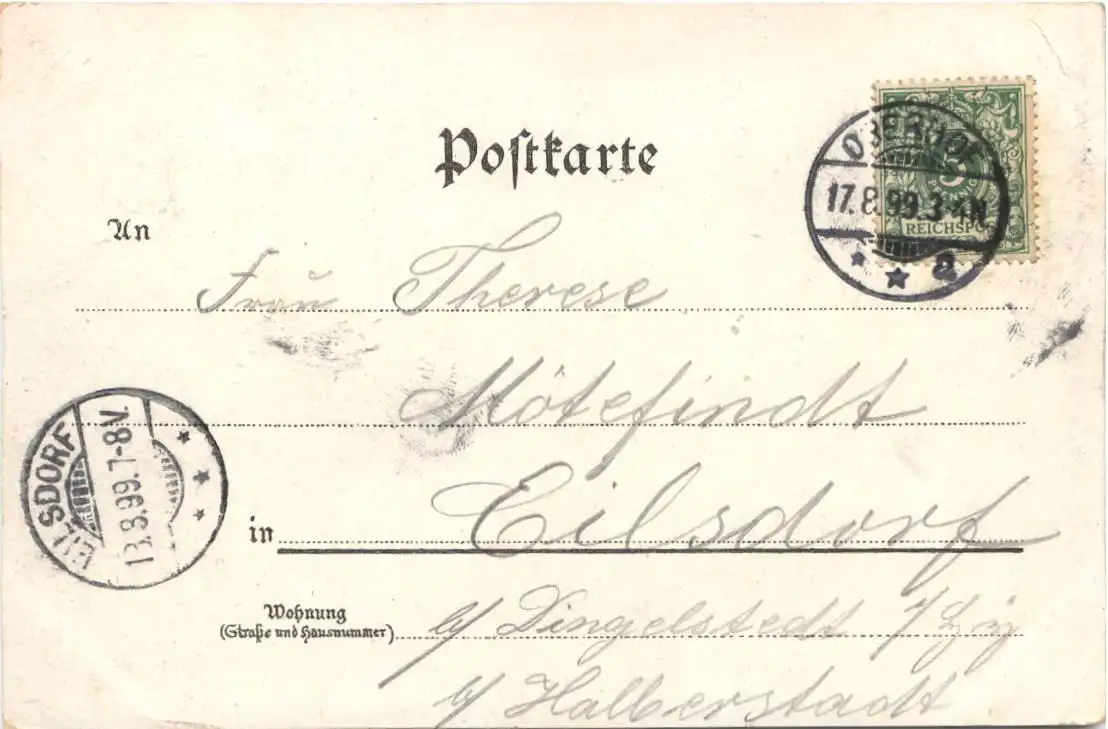 Postkarte
OBERHOF
17.8.99.3-4N
a
5
PFENNIG
REICHSPO
An
Frau Therese
Mötefindt
EILSDORF
8.99.7-8V.
in Eilsdorf
Wohnung
(Straße und Hausnummer)
b/ Dingelstedt
b/ Halberstadt